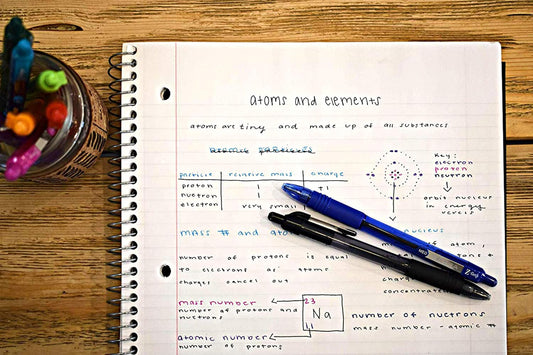 atoms and elements
atoms are tiny and made up of all substances
atomic particles
particle relative mass charge
proton 1 +1
nuetron 1
electron very small
Key:
electron
proton
nuetron
orbit nucleus
in energy
levels
mass # and
nucleus
number of protons is equal
to electrons as atoms
charges cancel out
atom,
concentrated
mass number
number of protons and
nuetrons
23
Na
11
number of nuetrons
mass number - atomic #
atomic number
number of protons